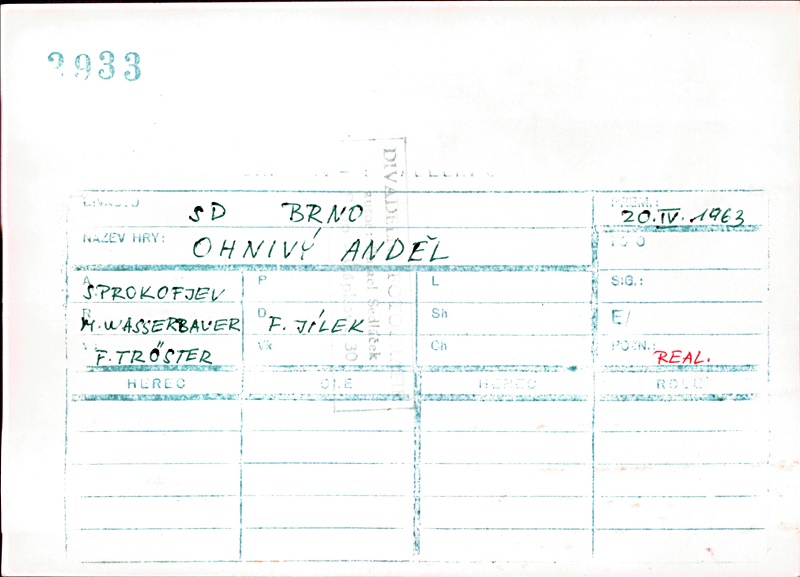 2933
DIVADEL
SD BRNO
PREM.: 20.IV.1963
NÁZEV HRY: OHNIVÝ ANDĚL
A S. PROKOFJEV P L SIG.:
R M. WASSERBAUER D F. JÍLEK Sh E/
V F. TRÖSTER Vk Ch POZN.: REAL.
HEREC HEREC ROLE